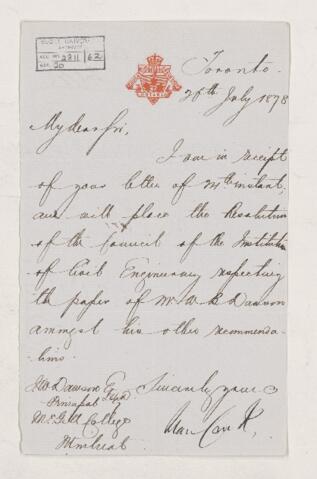 ACC. NO. 2211 62
REF. 20
Toronto
26th July 1878
My dear Sir,
I am in receipt
of your letter of 24th instant,
and will place the Resolution
of the Council of the Institution
of Civil Engineers respecting
the paper of Mr W. B. Dawson
amongst his other recommenda-
tions.
Sincerely yours
JW Dawson Esq
Principal
McGill College
Montreal